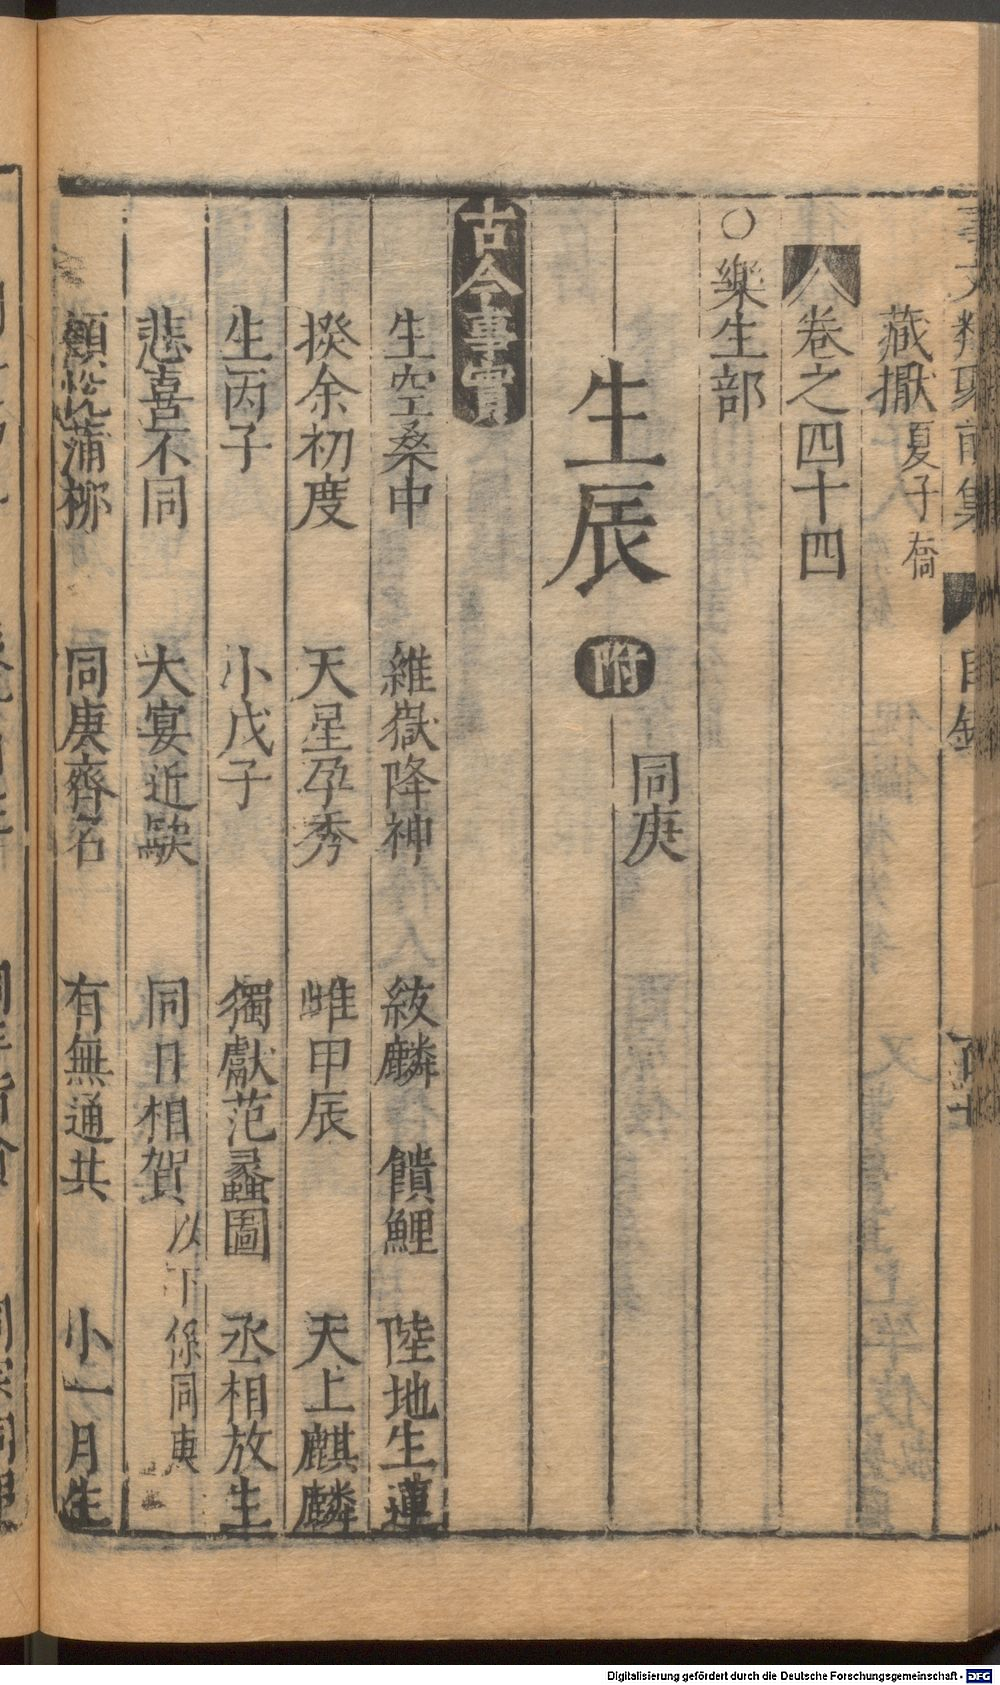 事文類聚前集 目錄
藏擫 夏子喬
卷之四十四
○樂生部
同庚
生辰 附
古今事實
生空桑中 維嶽降神 紱麟 饋鯉 陸地生蓮
揆余初度 天星孕秀 雌甲辰 天上麒麟
生丙子 小戊子 獨獻范蠡圖 丞相放生
悲喜不同 大宴近歟 同日相賀 以下係同庚
顧悅蒲柳 同庚齊名 有無通共 小一月生
Digitalisierung gefördert durch die Deutsche Forschungsgemeinschaft - DFG